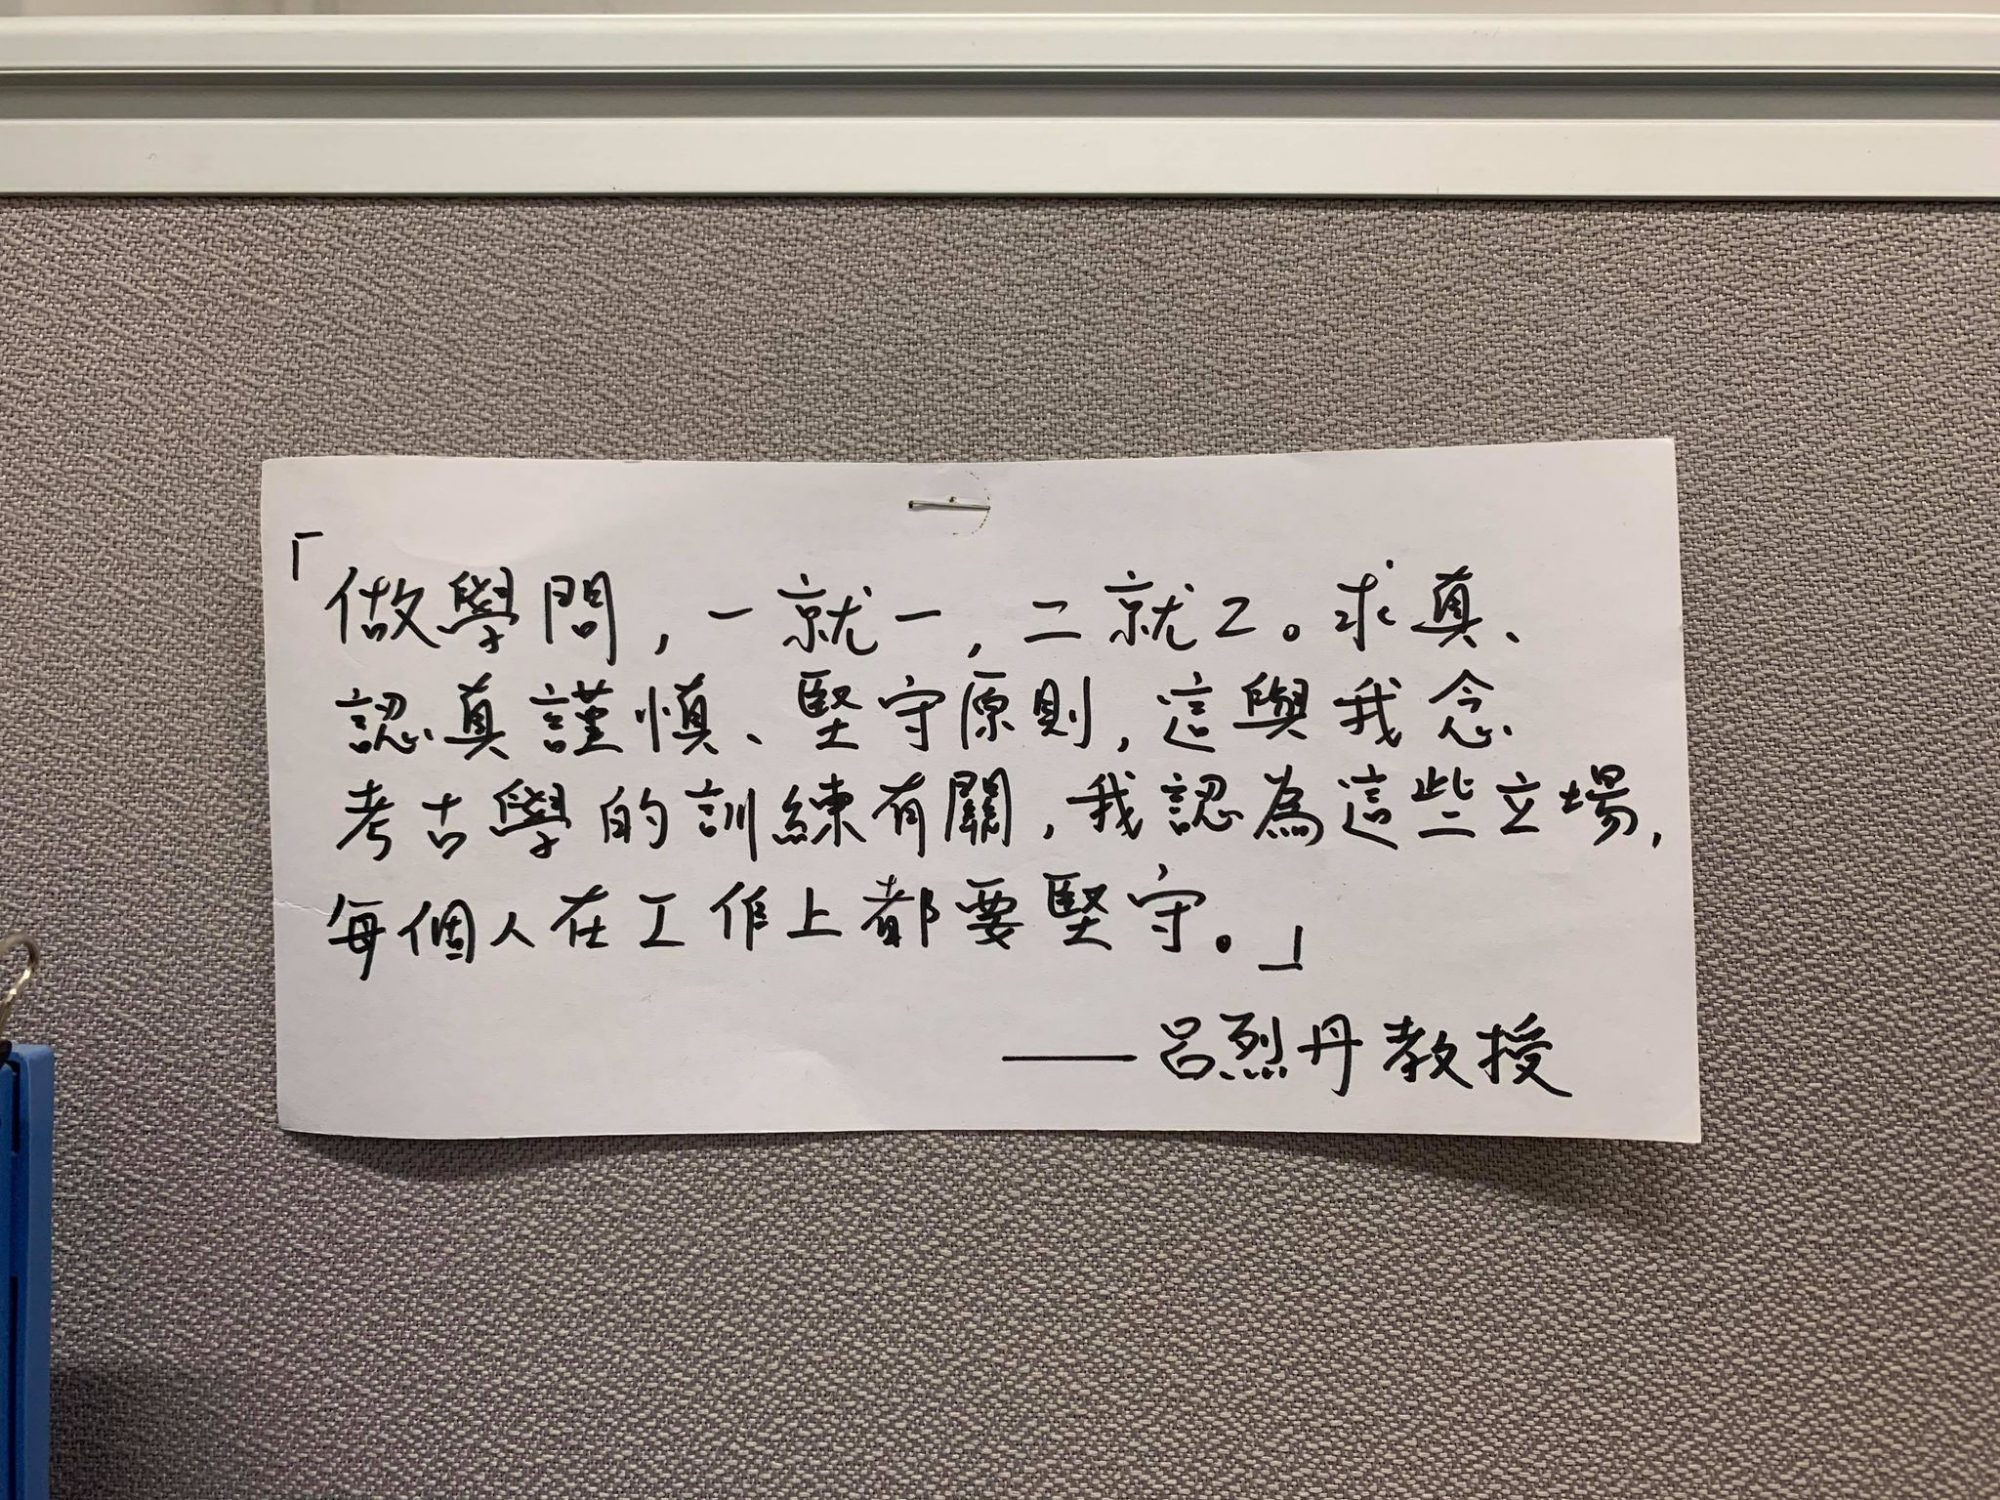 「做學問，一就一，二就二。求真、
認真謹慎、堅守原則，這與我念
考古學的訓練有關，我認為這些立場，
每個人在工作上都要堅守。」
——呂烈丹教授